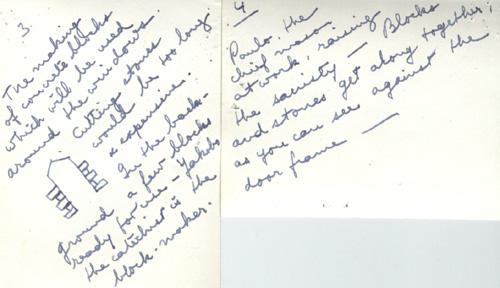 3
The making
of concrete blocks
which will be used
around the windows.
Cutting stones
would be too long
& expensive.
In the back-
ground a few blocks
ready for use - Yakobo
the catechist is the
block-maker.
4
Paulo the
chief mason
at work, raising
the sacristy — Blocks
and stones get along together,
as you can see against the
door frame —